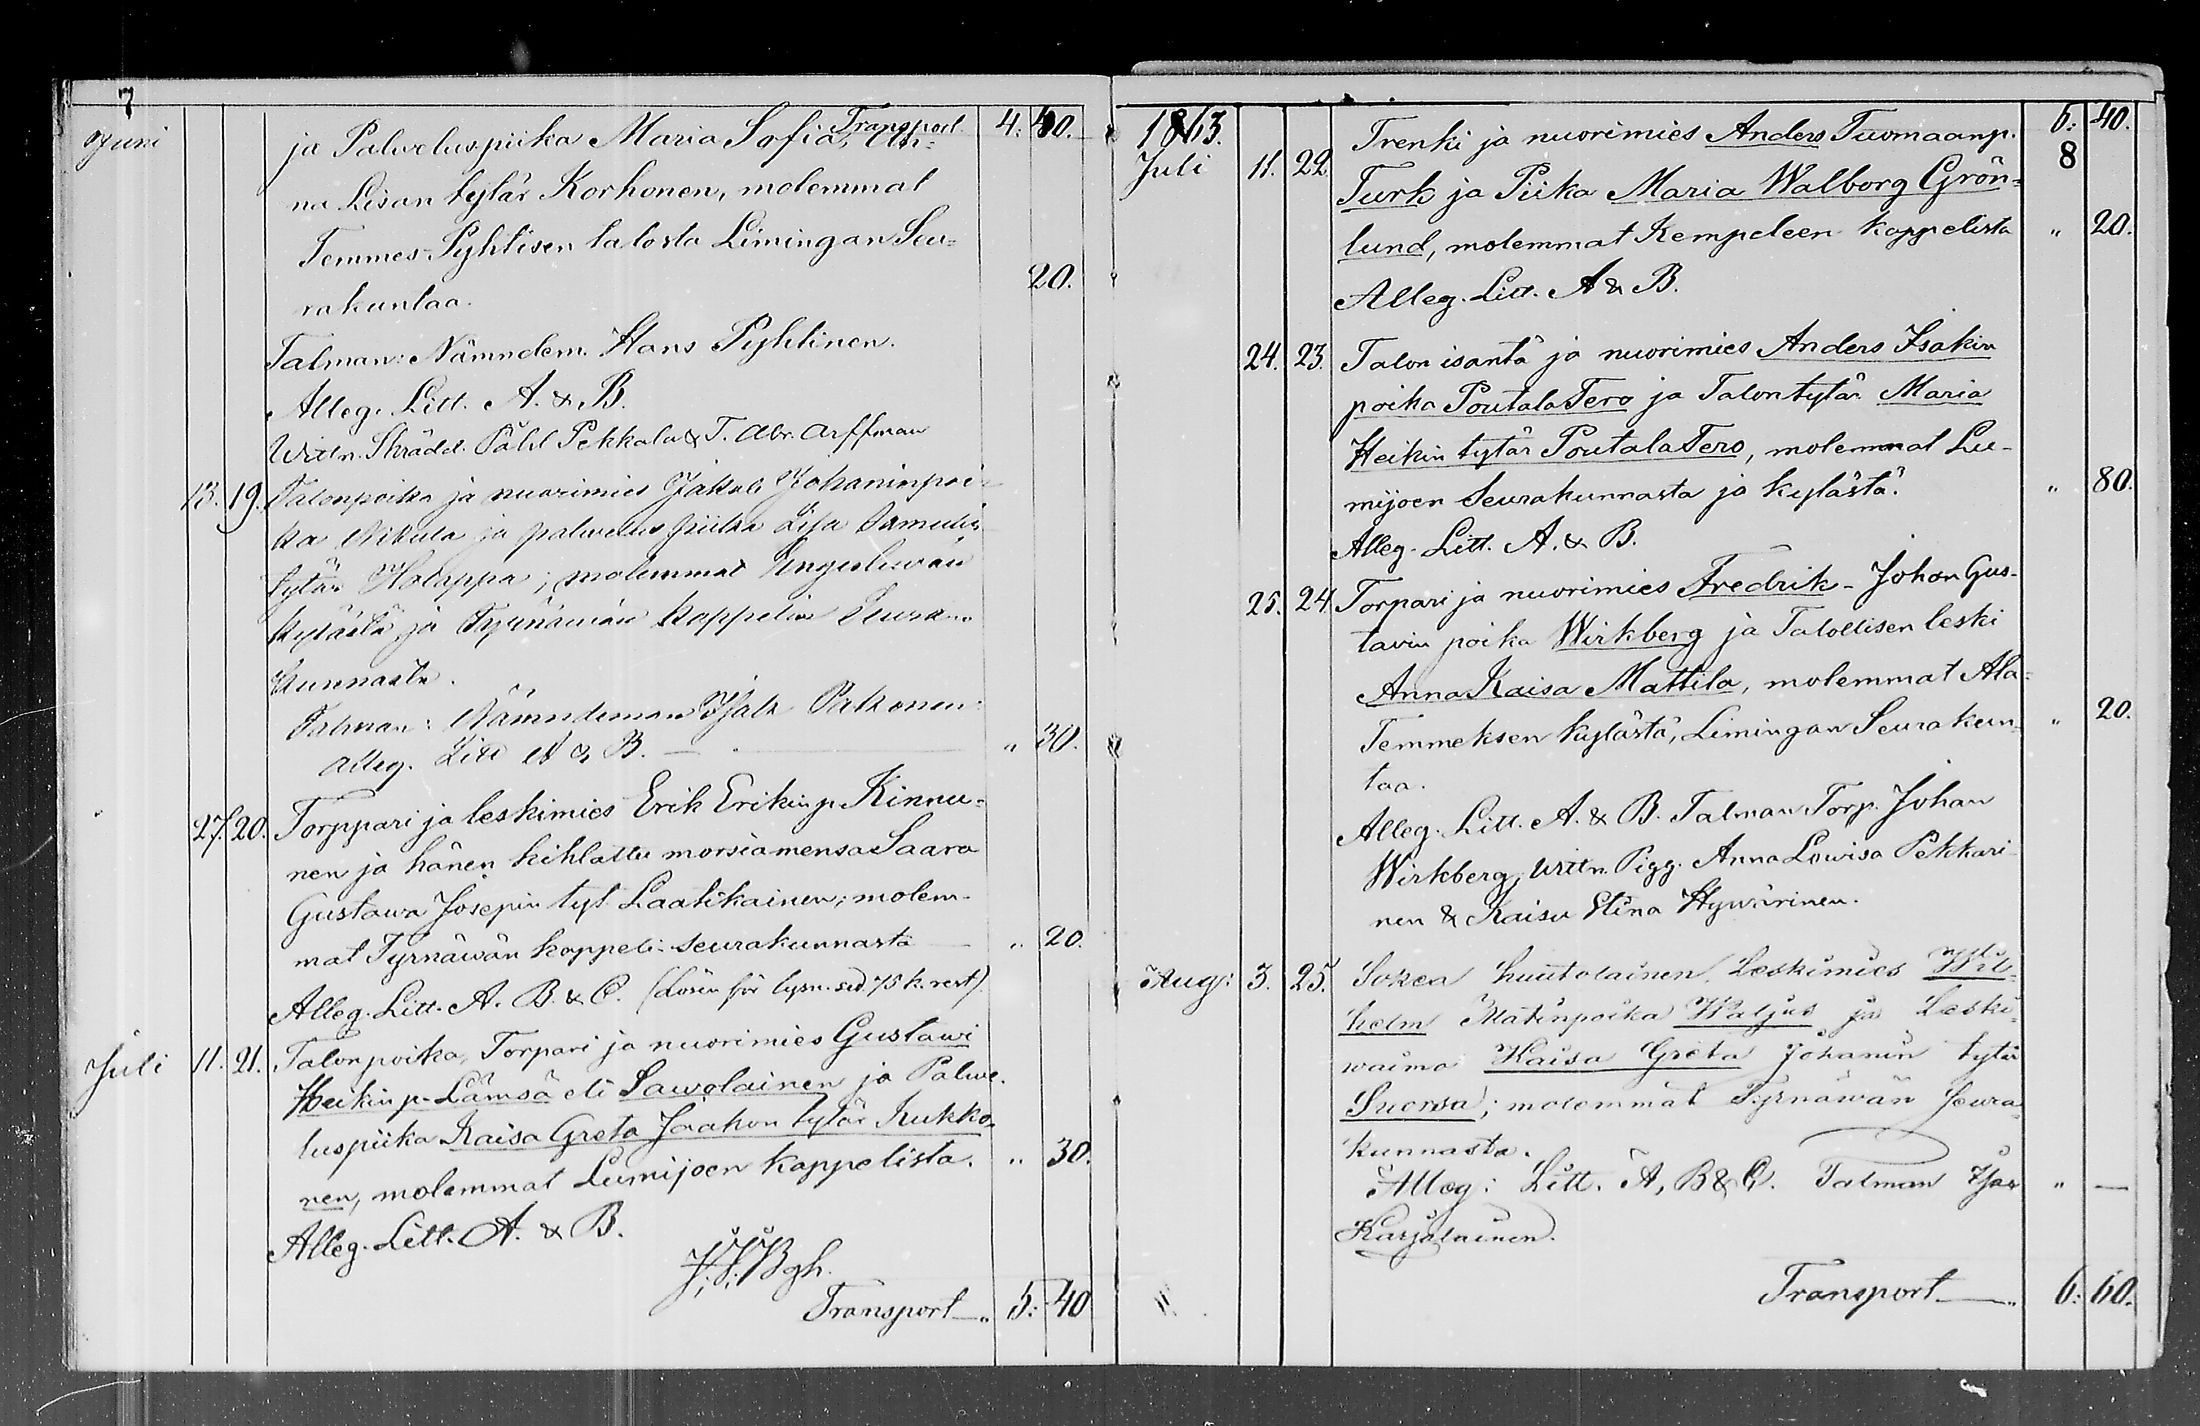 7
Juni
Transport 4: 40.
ja Palveluspiika Maria Sofia, An=
na Lisan tytär Korhonen, molemmat
Temmes-Pyhtisen talosta Limingan Seu=
rakuntaa. 20.
Talman: Nämndem. Hans Pyhtinen.
Alleg. Litt. A. & B.
Wittn. Skrädd. Påhl Pekkala & T. Abr. Arffman
13. 19. Talonpoika ja nuorimies Jakob Johaninpoi-
ka Nikula ja palvelus piika Lisa Samulin
tytär Holappa; molemmat Ängeslewän
kylästä ja Tyrnäwän kappelin Seura=
kunnasta.
Talman: Nämndeman Isak Pakonen.
Alleg. Litt A & B. — " 30.
27. 20. Torppari ja leskimies Erik Erikin p. Kinnu=
nen ja hänen kihlattu morsiamensa Saara
Gustawa Josepin tyt. Laatikainen; molem-
mat Tyrnäwän kappeli-seurakunnasta — " 20.
Alleg. Litt. A. B. & C. (Lösen för lysn. sed. 75 k. rest).
Juli 11. 21. Talonpoika, Torpari ja nuorimies Gustawi
Heikin p. Lämsä eli Sawolainen ja Palwe-
luspiika Kaisa Greta Jaakon tytär Kukko-
nen, molemmat Lumijoen kappelista. " 30.
Alleg. Litt. A. & B.
Transport — " 5: 40
1863.
6: 40.
Juli 11. 22. Trenki ja nuorimies Anders Tuomaanp. 8
Turk ja Piika Maria Walborg Grön=
lund, molemmat Kempeleen kappelista " 20.
Alleg. Litt. A & B.
24. 23. Talon isäntä ja nuorimies Anders Isakin
poika PoutalaTero ja Talontytär Maria
Heikin tytär PoutalaTero, molemmat Lu-
mijoen Seurakunnasta ja kylästä. " 80.
Alleg. Litt. A. & B.
25. 24. Torpari ja nuorimies Fredrik-Johan Gus-
tavin poika Wirkberg ja Talollisen leski
Anna Kaisa Mattila, molemmat Ala=
Temmeksen kylästä, Limingan Seurakun- " 20.
taa.
Alleg. Litt. A. & B. Talman Torp. Johan
Wirkberg, Wittn. Pigg. Anna Lowisa Pekkari-
nen & Kaisu Stina Hywärinen.
Aug: 3. 25. Sokea huutolainen, Leskimies Wil=
helm Matinpoika Waljus ja Leski=
waimo Kaisa Greta Johanin tytär
Suorsa; molemmat Tyrnäwän Seura=
kunnasta.
Alleg: Litt. A, B & C. Talman Isak " —
Karjalainen.
Transport — " 6: 60.